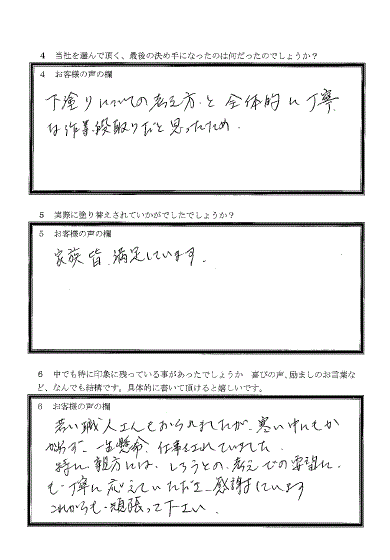 4 当社を選んで頂く、最後の決め手になったのは何だったのでしょうか？
4 お客様の声の欄
下塗りについての考え方と全体的に丁寧
な作業段取りだと思ったため.
5 実際に塗り替えされていかがでしたでしょうか？
5 お客様の声の欄
家族皆、満足しています.
6 中でも特に印象に残っている事があったでしょうか 喜びの声、励ましのお言葉な
ど、なんでも結構です。具体的に書いて頂けると嬉しいです。
6 お客様の声の欄
若い職人さんもおられましたが、寒い中にもか
かわらず、一生懸命、仕事をされていました.
特に親方には、しろうとの考えでの要望に
も丁寧に応えていただき感謝しています
これからも頑張って下さい.